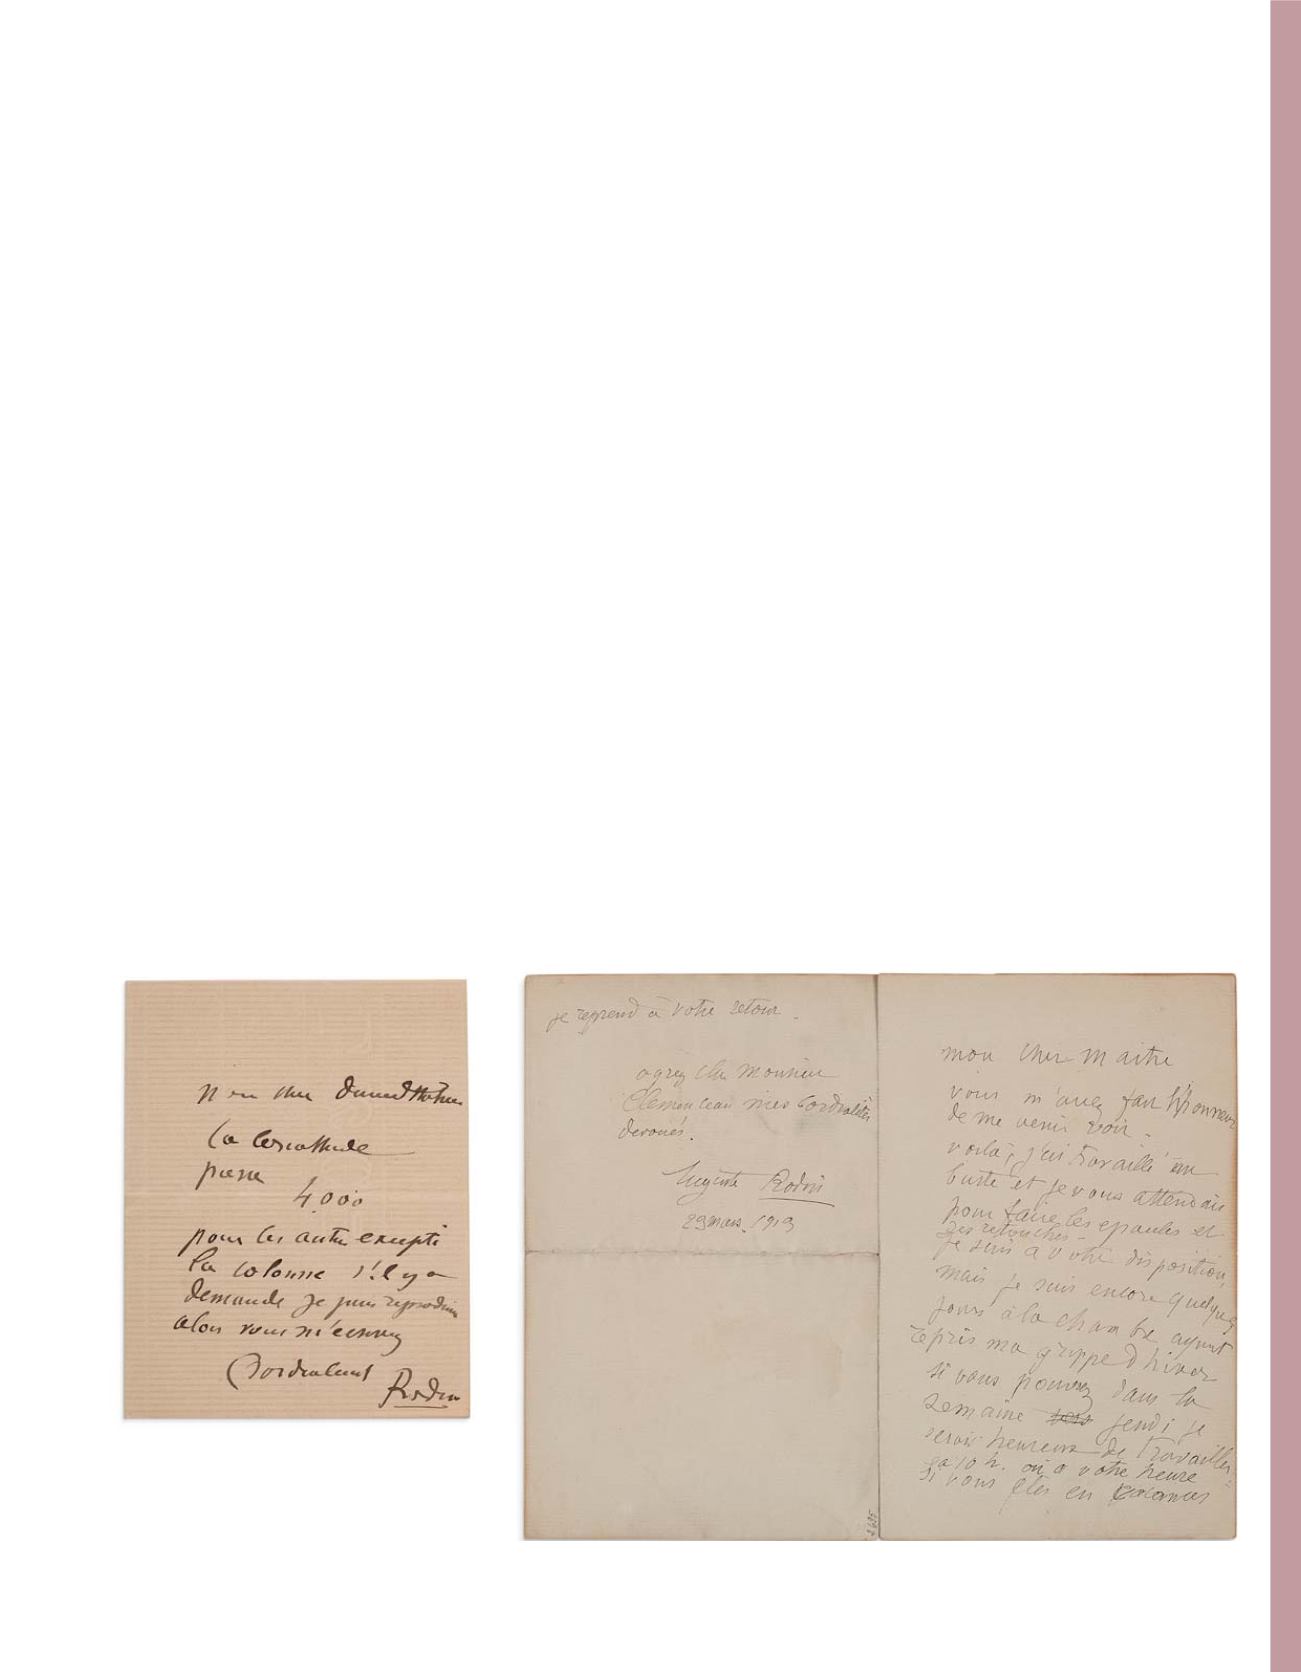 mon cher Durand
la Cariathide
pierre
4.000
pour les autre excepté
la colonne s'il y a
demande je puis reproduire
alors vous m'écrivez
Cordialement
Rodin
mon cher maitre
vous m'avez fait l'honneur
de me venir voir.
voilà, j'ai travaillé un
buste et je vous attendais
pour faire les epaules et
des retouches -
je suis a votre disposition,
mais je suis encore quelques
jours à la chambre ayant
repris ma grippe d'hiver
si vous pouvez dans la
semaine jeudi je
serais heureux de travailler
a 10 h. ou a votre heure
si vous etes en vacances
je reprend à votre retour.
agrez cher Monsieur
Clemenceau mes Cordialités
devoués.
Auguste Rodin
29 mars. 1913